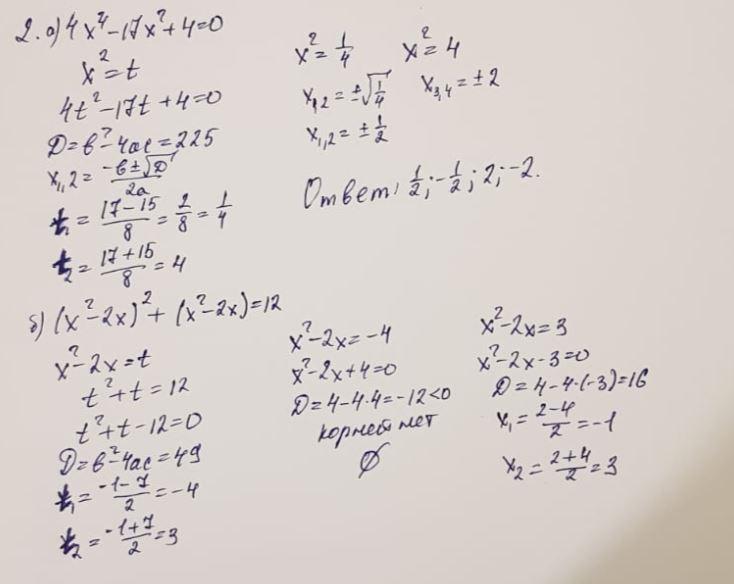 2. а) 4x⁴-17x²+4=0
x²=t
4t²-17t+4=0
D=b²-4ac=225
x₁,₂=(-b±√D)/2a
t₁=(17-15)/8=2/8=1/4
t₂=(17+15)/8=4
x²=1/4 x²=4
x₁,₂=±√(1/4) x₃,₄=±2
x₁,₂=±1/2
Ответ: 1/2; -1/2; 2; -2.
б) (x²-2x)²+(x²-2x)=12
x²-2x=t
t²+t=12
t²+t-12=0
D=b²-4ac=49
t₁=(-1-7)/2=-4
t₂=(-1+7)/2=3
x²-2x=-4
x²-2x+4=0
D=4-4·4=-12<0
корней нет
∅
x²-2x=3
x²-2x-3=0
D=4-4·(-3)=16
x₁=(2-4)/2=-1
x₂=(2+4)/2=3